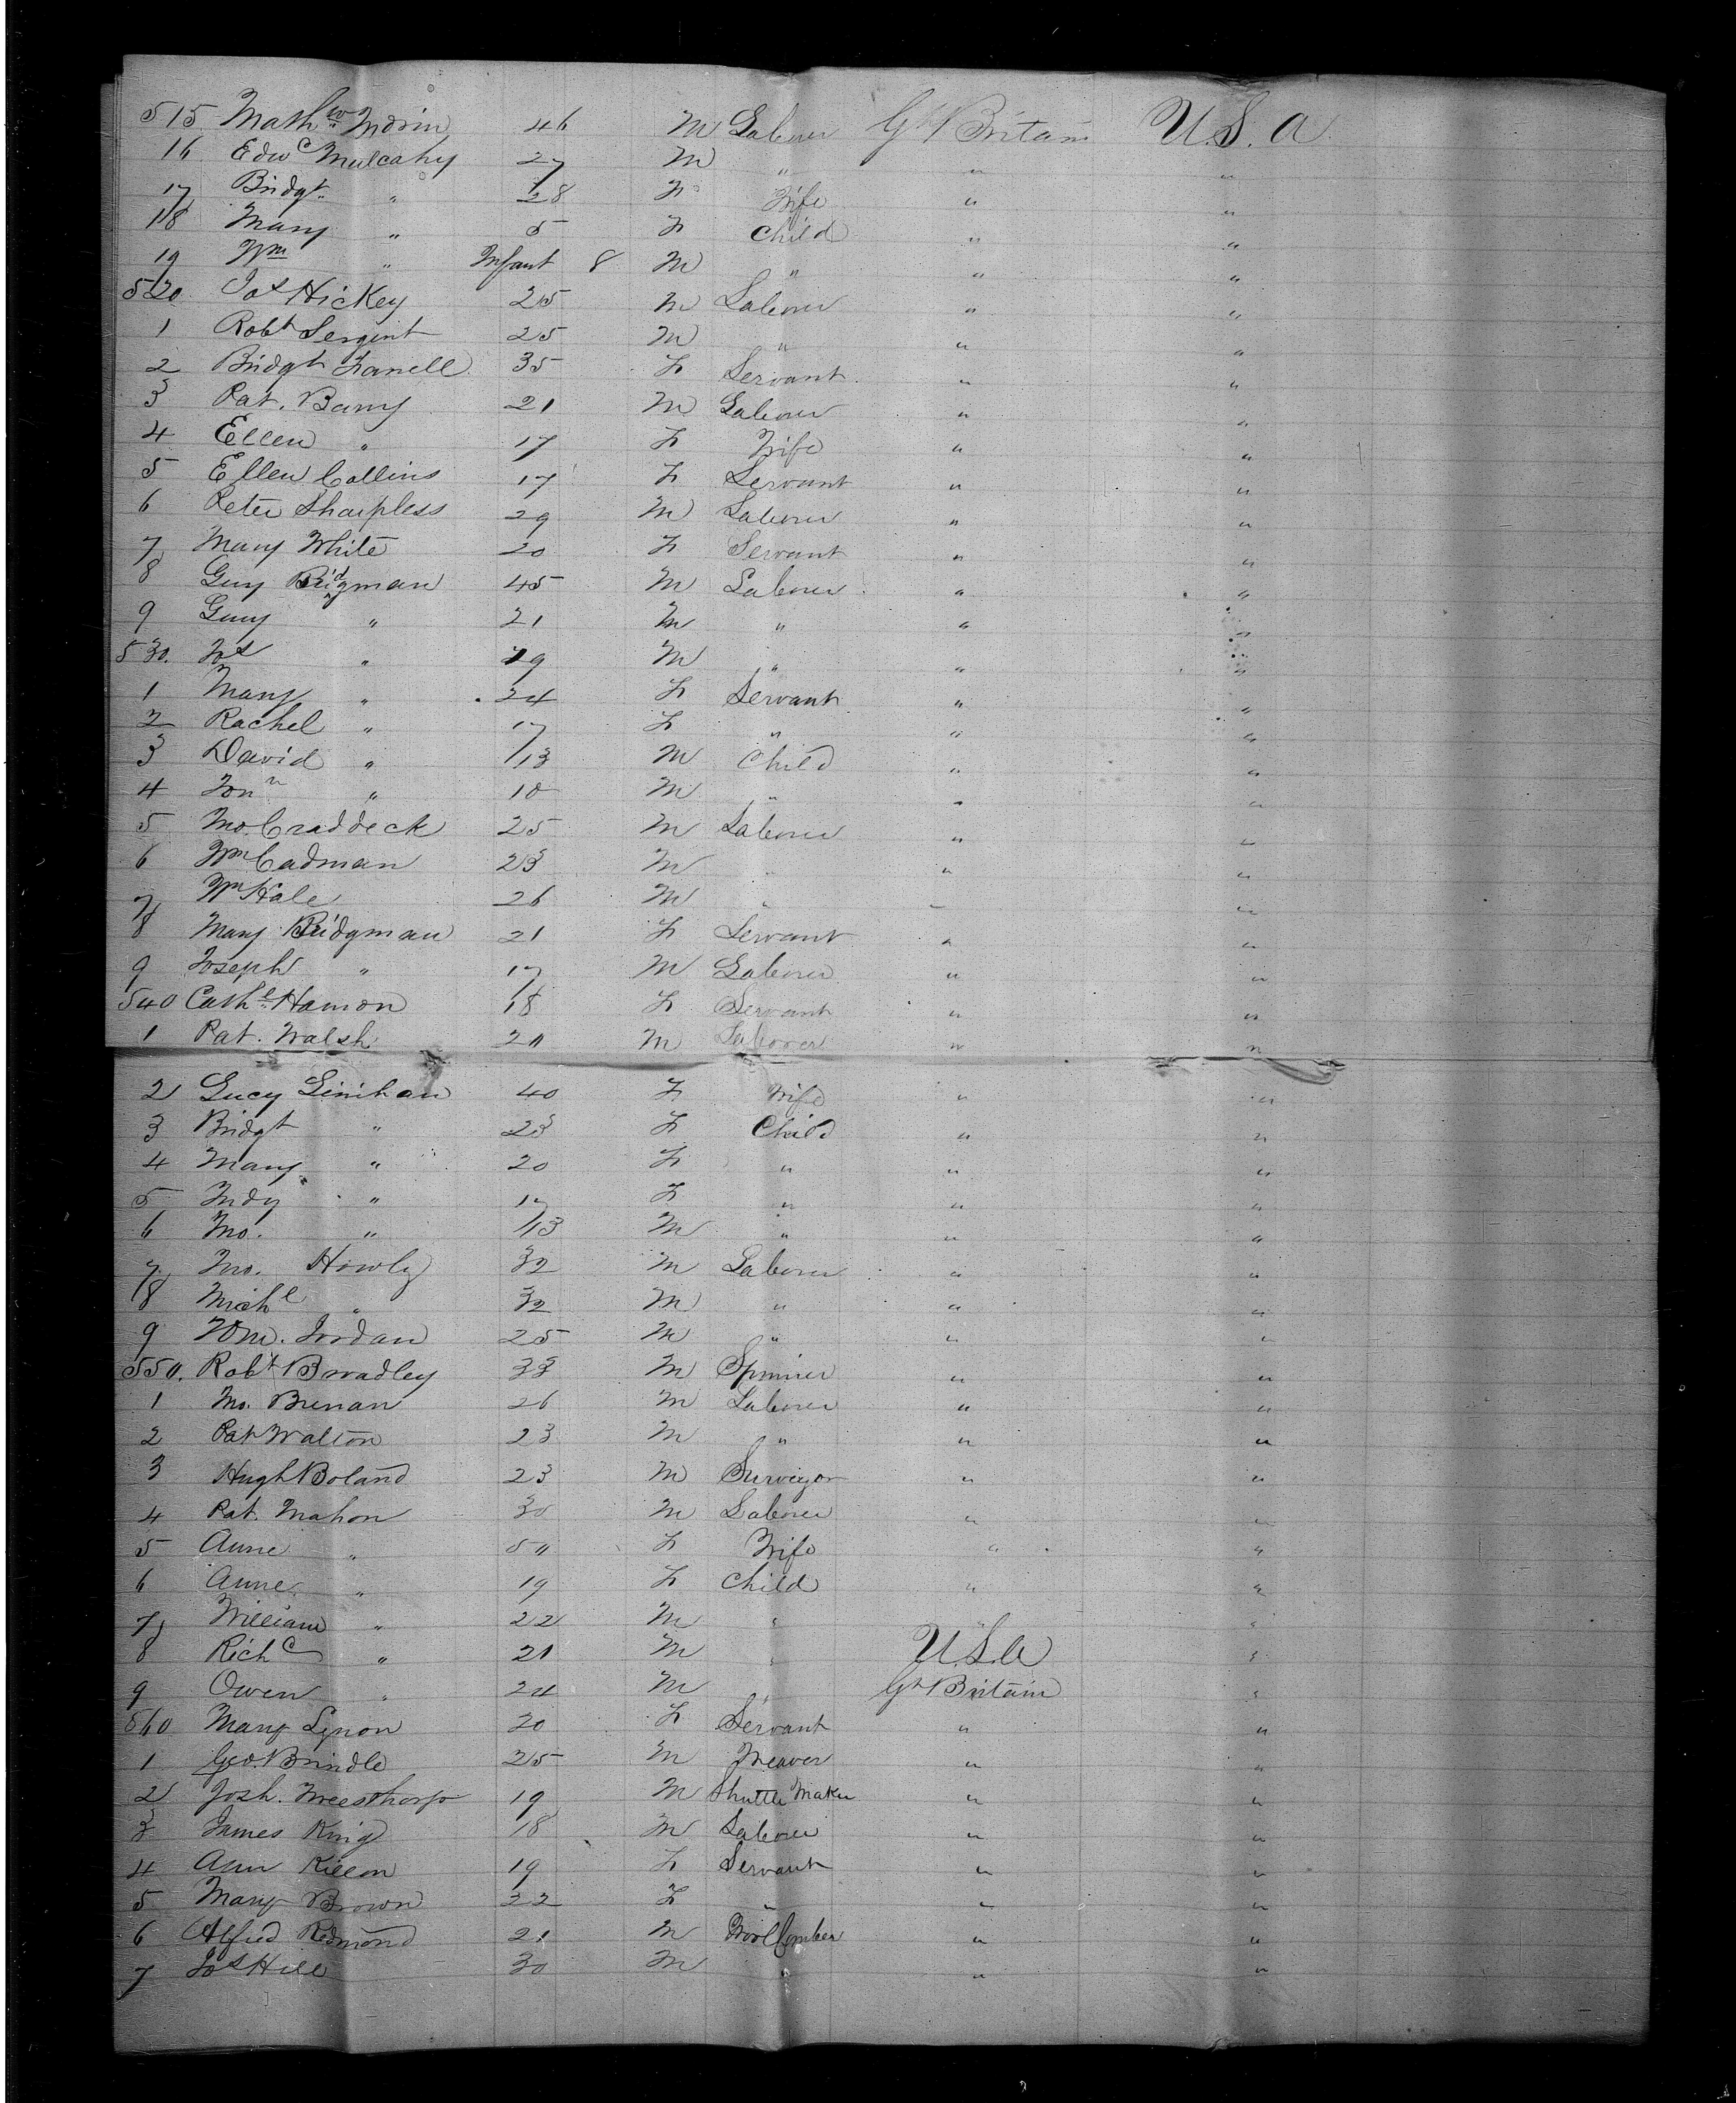 515 Mathw Morin 46 M Laborer Gt Britain U.S.A
16 Edwd Mulcahy 27 M " " "
17 Bridgt " 28 F Wife " "
18 Mary " 5 F Child " "
19 Wm " Infant 8 M " " "
520 Jas Hickey 25 M Laborer " "
1 Robt Sergent 25 M " " "
2 Bridgt Farrell 35 F Servant " "
3 Pat. Barry 21 M Laborer " "
4 Ellen " 17 F Wife " "
5 Ellen Collins 17 F Servant " "
6 Peter Sharpless 29 M Laborer " "
7 Mary White 20 F Servant " "
8 Guy Bridgman 45 M Laborer " "
9 Guy " 21 M " " "
530. Jos " 19 M " " "
1 Mary " 24 F Servant " "
2 Rachel " 17 F " " "
3 David " 13 M Child " "
4 Jonn " 10 M " " "
5 Jno. Craddeck 25 M Laborer " "
6 Wm Cadman 23 M " " "
7 Wm Hale 26 M " " "
8 Mary Bridgman 21 F Servant " "
9 Joseph " 17 M Laborer " "
540 Cathe Hamon 18 F Servant " "
1 Pat. Walsh 20 M Laborer " "
2 Lucy Linihan 40 F Wife " "
3 Bridgt " 23 F Child " "
4 Mary " 20 F " " "
5 Judy " 17 F " " "
6 Jno. " 13 M " " "
7 Jno. Howly 32 M Laborer " "
8 Michl " 32 M " " "
9 Wm. Jordan 25 M " " "
550. Robt Bradley 33 M Spinner " "
1 Jno. Brenan 26 M Laborer " "
2 Pat Walton 23 M " " "
3 Hugh Boland 23 M Surveyor " "
4 Pat. Mahon 30 M Laborer " "
5 Anne " 50 F Wife " "
6 Anne " 19 F Child " "
7 William " 22 M " " "
8 Richd " 21 M " U.S.A "
9 Owen " 24 M " Gt Britain "
560 Mary Lynon 20 F Servant " "
1 Geo. Brindle 25 M Weaver " "
2 Josh. Weesthorp 19 M Shuttle Maker " "
3 James King 18 M Laborer " "
4 Ann Killon 19 F Servant " "
5 Mary Brown 22 F " " "
6 Alfred Redmond 21 M Wool Comber " "
7 Jos Hill 30 M " " "